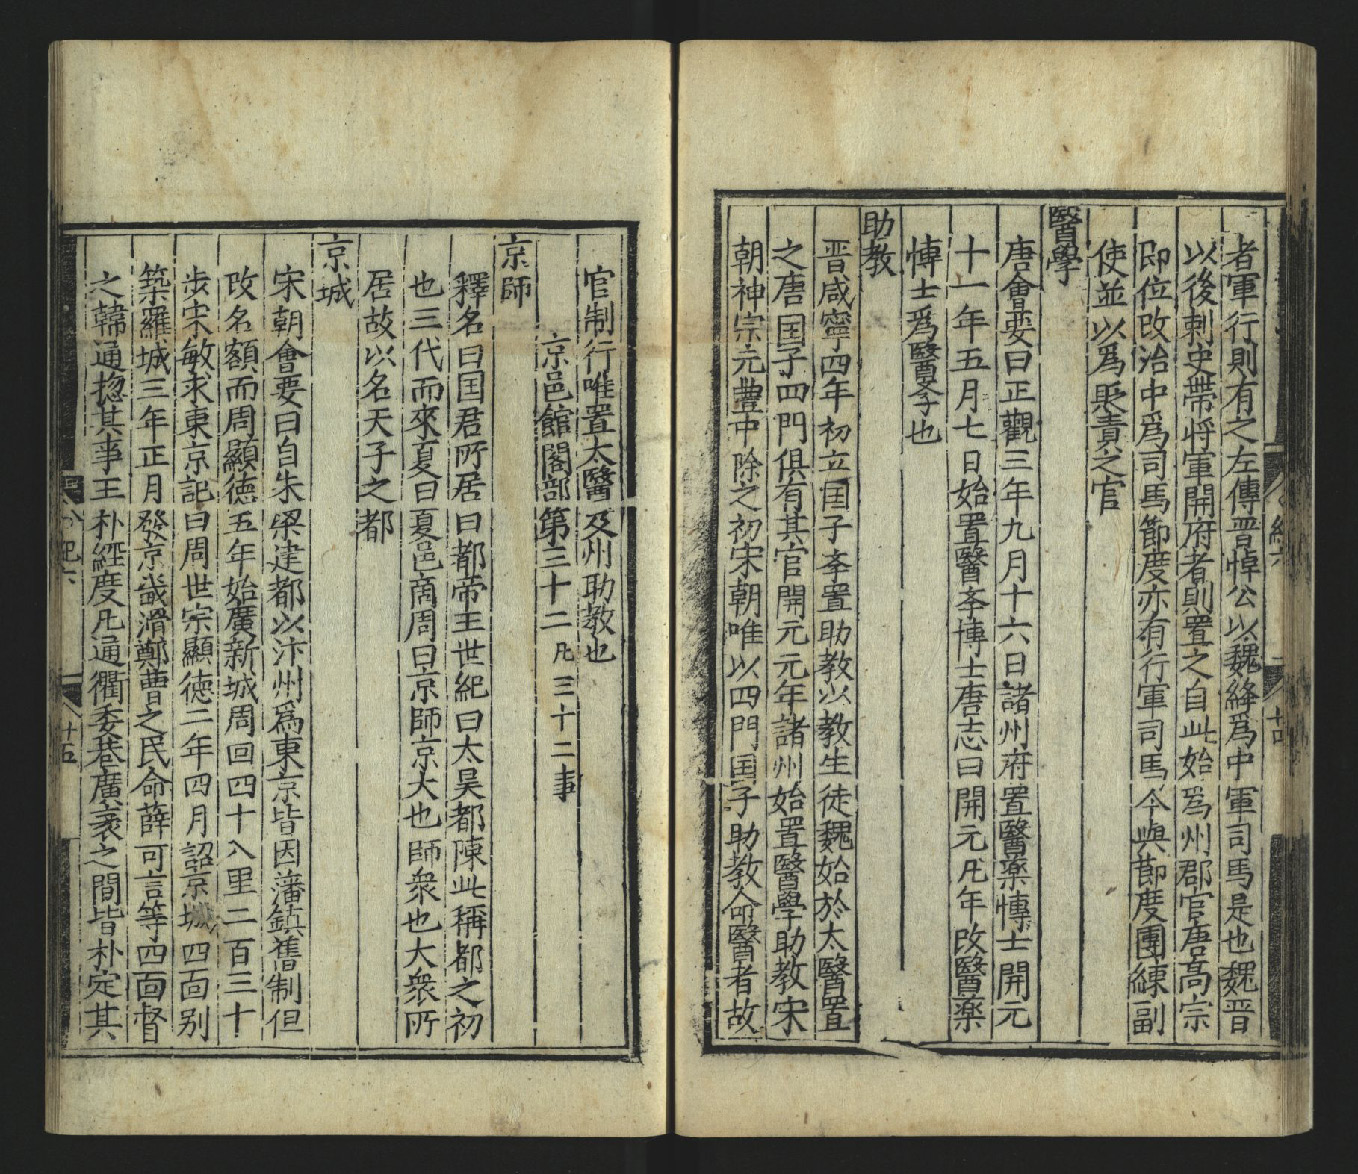 者軍行則有之左傳晋悼公以魏絳爲中軍司馬是也魏晋
以後刺史帶將軍開府者則置之自此始爲州郡官唐髙宗
即位改治中爲司馬節度亦有行軍司馬今與節度團練副
使並以爲貶責之官
醫學
唐會要曰正觀三年九月十六日諸州府置醫藥愽士開元
十一年五月七日始置醫斈博士唐志曰開元元年改醫藥
愽士爲醫斈也
助教
晋咸寧四年初立国子斈置助教以教生徒魏始於太醫置
之唐国子四門俱有其官開元元年諸州始置醫學助教宋
朝神宗元豊中除之初宋朝唯以四門国子助教命醫者故
官制行唯置太醫及州助教也
京邑館閣部第三十二 凡三十二事
京師
釋名曰囯君所居曰都帝王世紀曰太昊都陳此稱都之初
也三代而來夏曰夏邑商周曰京師京大也師衆也大衆所
居故以名天子之都
京城
宋朝會要曰自朱梁建都以汴州爲東京皆因藩鎮舊制但
改名額而周顯德五年始廣新城周回四十八里二百三十
步宋敏求東京記曰周世宗顯徳二年四月詔京城四面别
築羅城三年正月發京畿滑鄭曹之民命薛可言等四面督
之韓通揔其事王朴經度凡通衢委巷廣袤之間皆朴定其